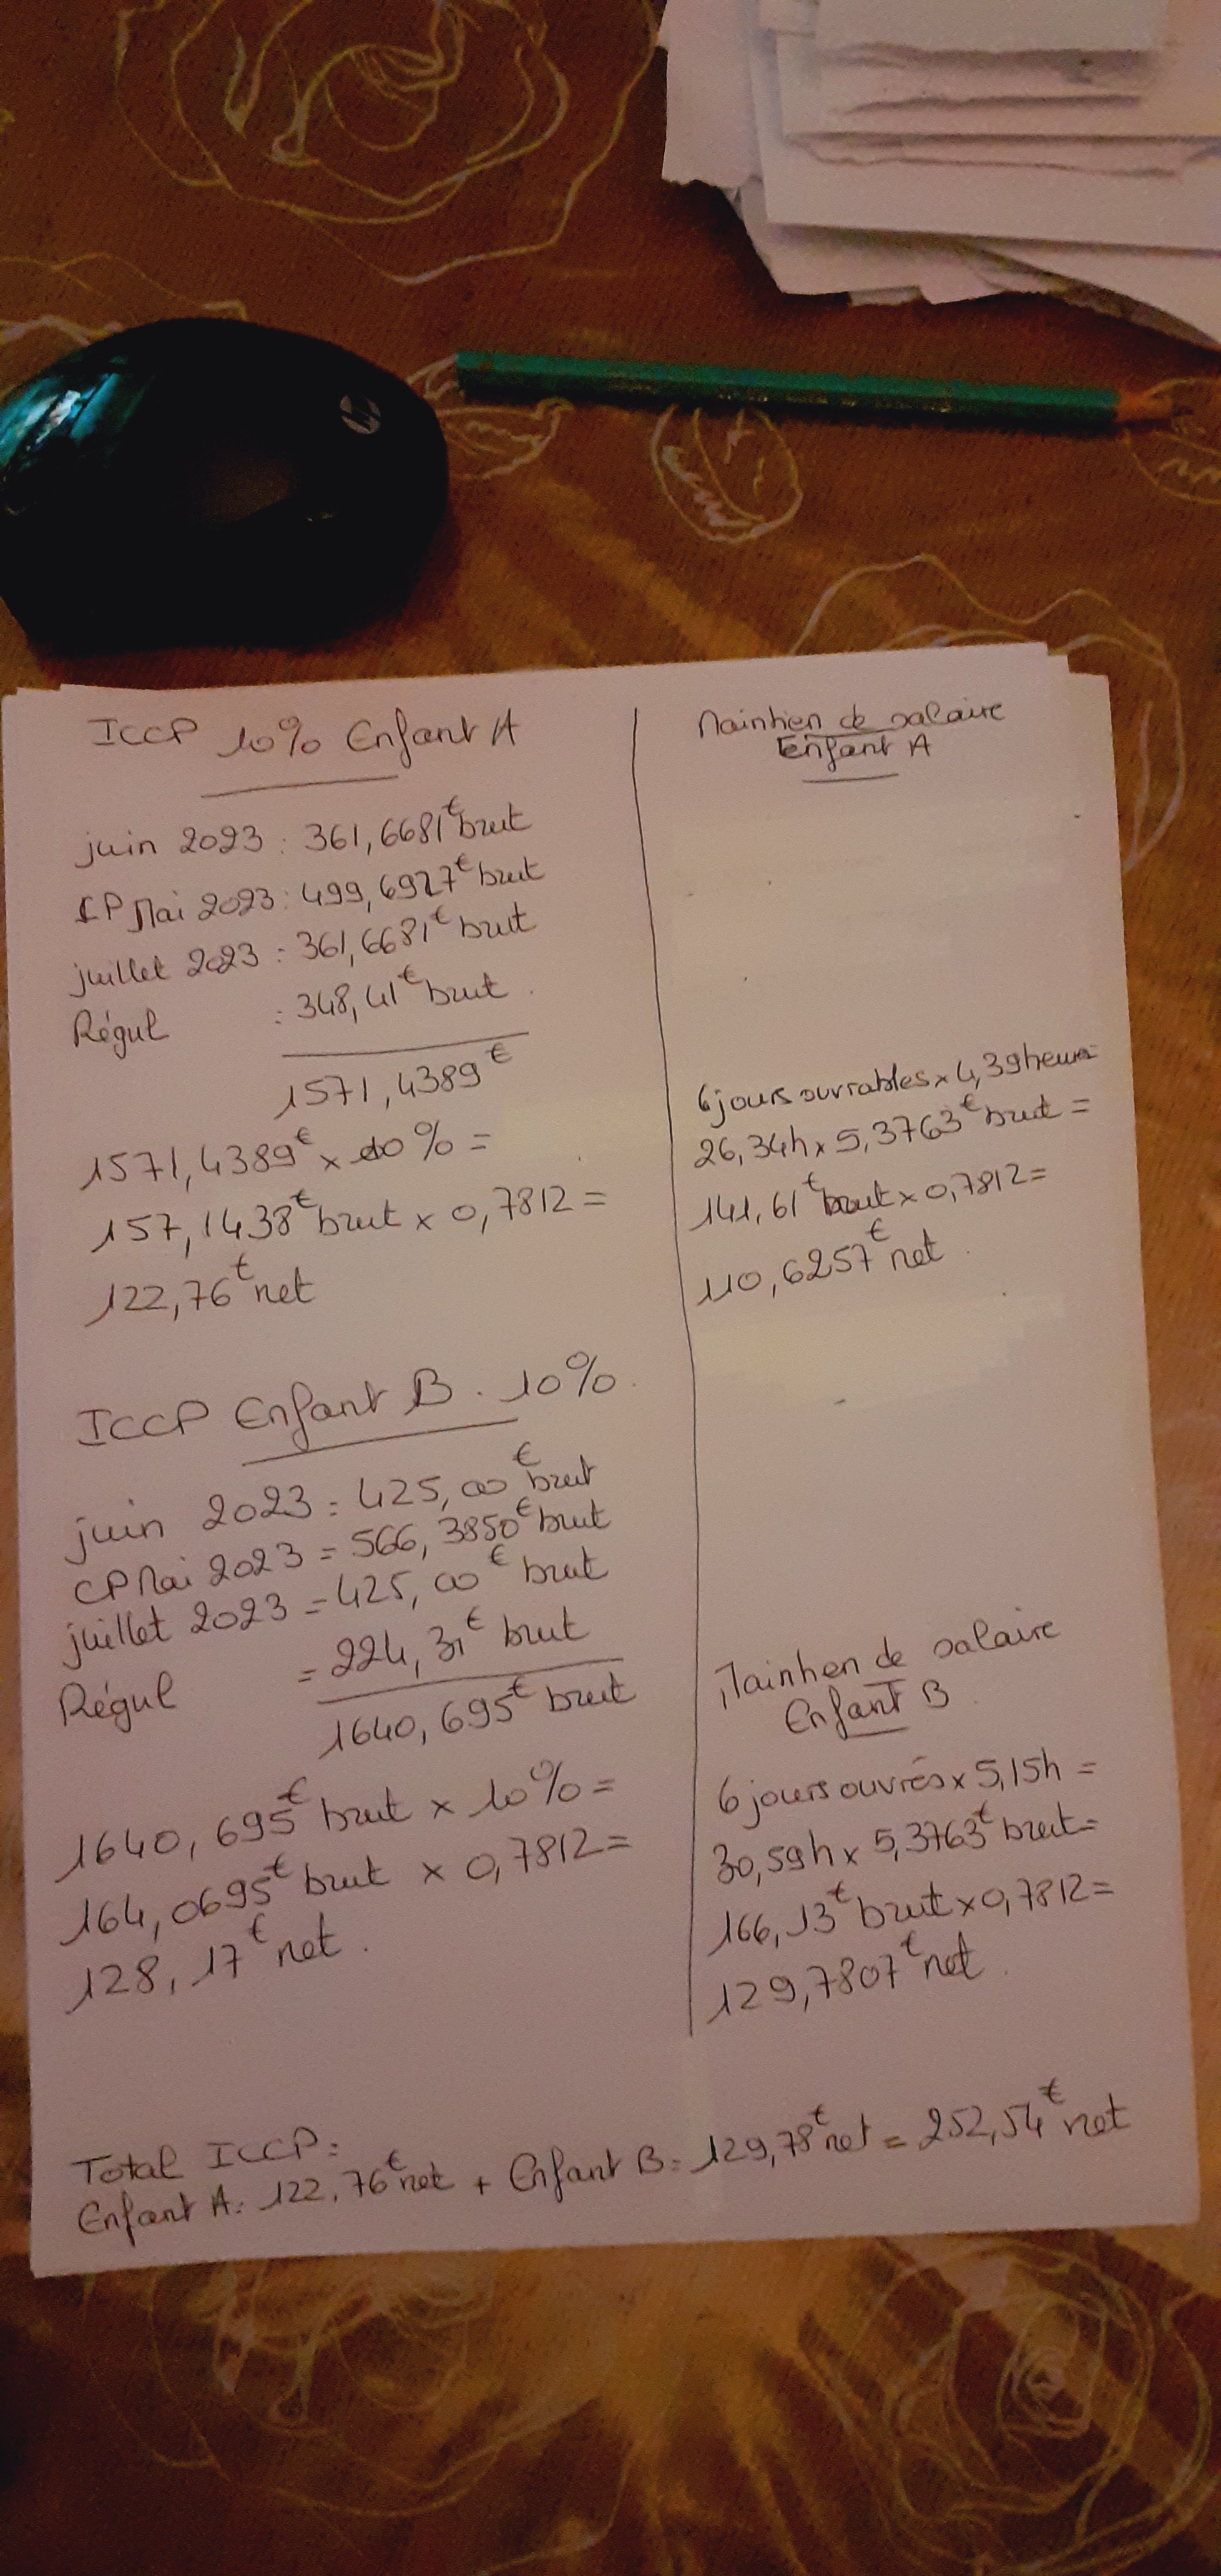 ICCP 10% Enfant A
juin 2023 : 361,6681€ brut
CP Mai 2023 : 499,6927€ brut
juillet 2023 : 361,6681€ brut
Régul : 348,41€ brut.
1571,4389€
1571,4389€ x 10% =
157,1438€ brut x 0,7812 =
122,76€ net
Maintien de salaire
Enfant A
6 jours ouvrables x 4,39heures
26,34h x 5,3763€ brut =
141,61€ brut x 0,7812 =
110,6257€ net.
ICCP Enfant B. 10%.
juin 2023 = 425,00€ brut
CP Mai 2023 = 566,3850€ brut
juillet 2023 = 425,00€ brut
Régul = 224,31€ brut
1640,695€ brut
1640,695€ brut x 10% =
164,0695€ brut x 0,7812 =
128,17€ net.
Maintien de salaire
Enfant B.
6 jours ouvrés x 5,15h =
30,59h x 5,3763€ brut =
166,13€ brut x 0,7812 =
129,7807€ net.
Total ICCP :
Enfant A : 122,76€ net + Enfant B : 129,78€ net = 252,54€ net